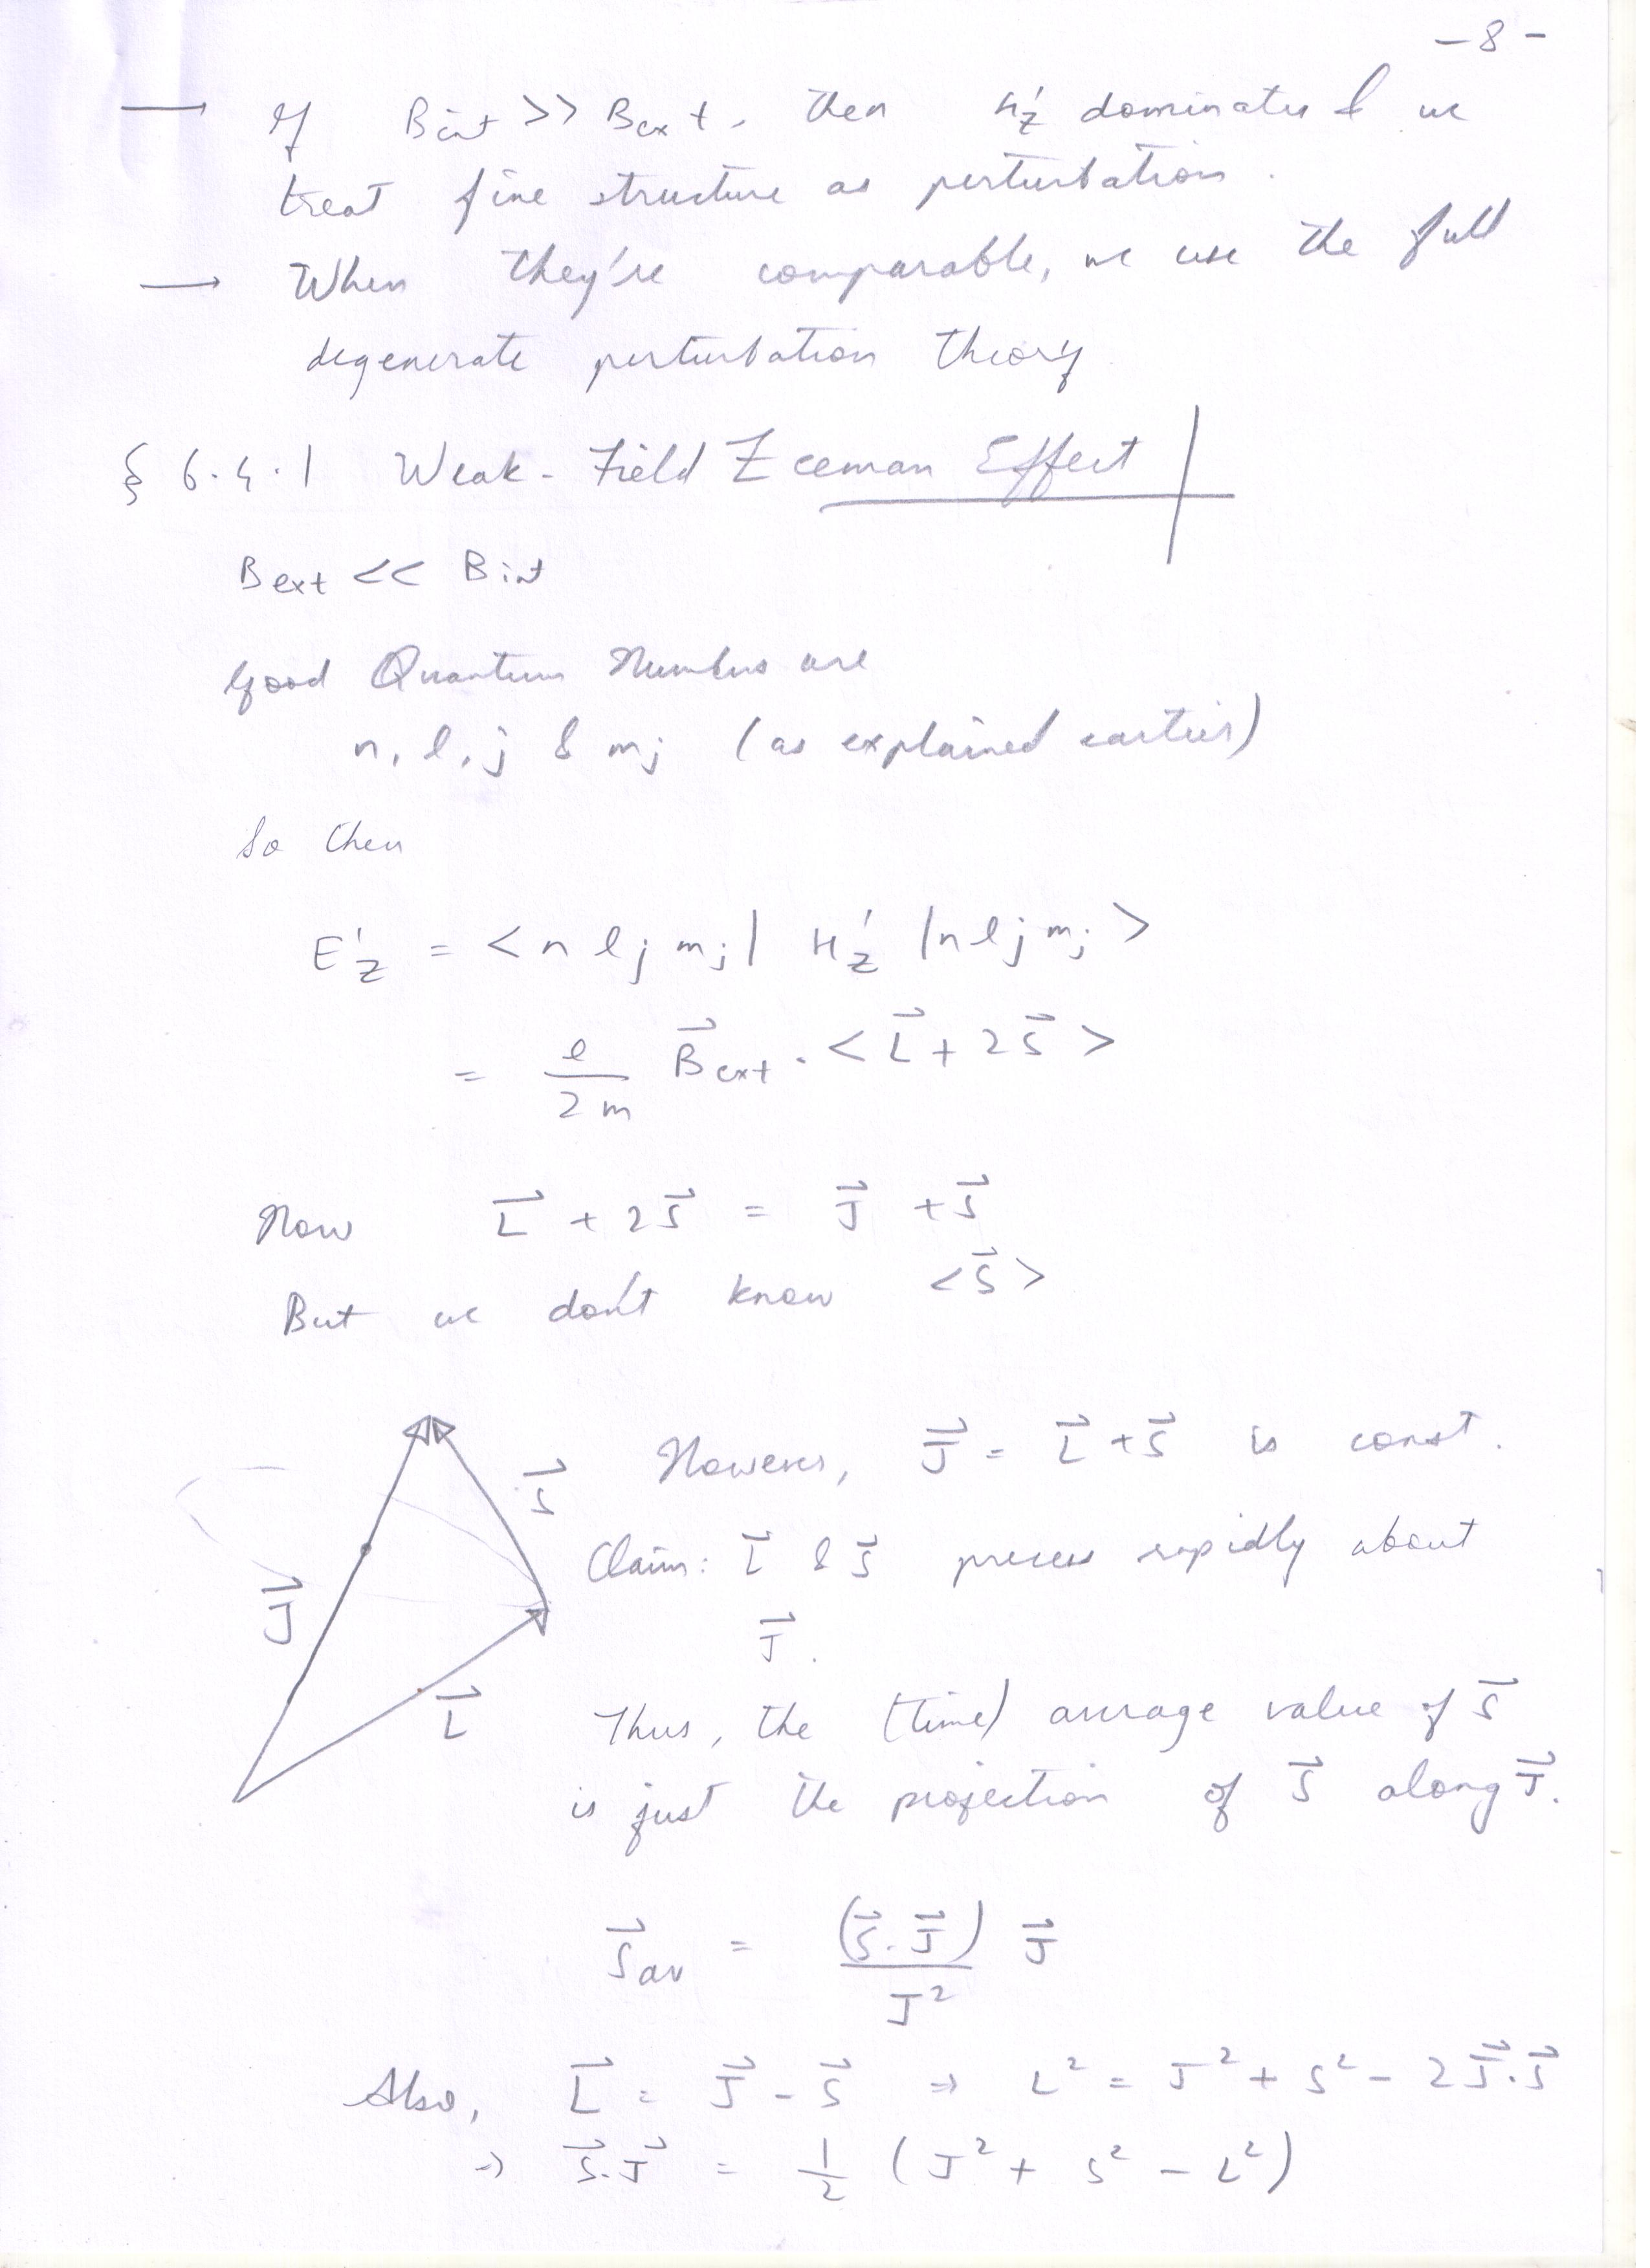 -8-
→ If Bint >> Bext, then H'z dominates & we
treat fine structure as perturbation.
→ When they're comparable, we use the full
degenerate perturbation theory
§ 6.4.1 Weak-Field Zeeman Effect
Bext << Bint
Good Quantum Numbers are
n, l, j & mj (as explained earlier)
So then
E'z = <n l j mj| H'z |n l j mj>
= e/2m B⃗ext · <L⃗ + 2S⃗>
Now L⃗ + 2S⃗ = J⃗ + S⃗
But we don't know <S⃗>
However, J⃗ = L⃗ + S⃗ is const.
Claim: L⃗ & S⃗ precess rapidly about
J⃗.
Thus, the (time) average value of S⃗
is just the projection of S⃗ along J⃗.
J⃗
S⃗
L⃗
S⃗av = (S⃗·J⃗)/J² J⃗
Also, L⃗ = J⃗ - S⃗ ⇒ L² = J² + S² - 2J⃗·S⃗
⇒ S⃗·J⃗ = 1/2 (J² + S² - L²)